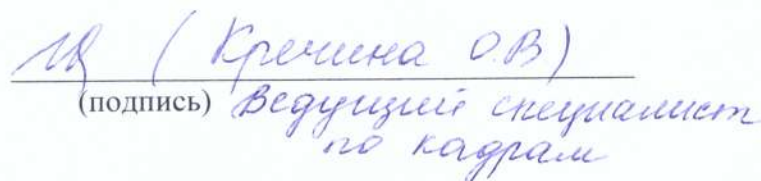 (Кречина О.В)
(подпись) Ведущий специалист
по кадрам